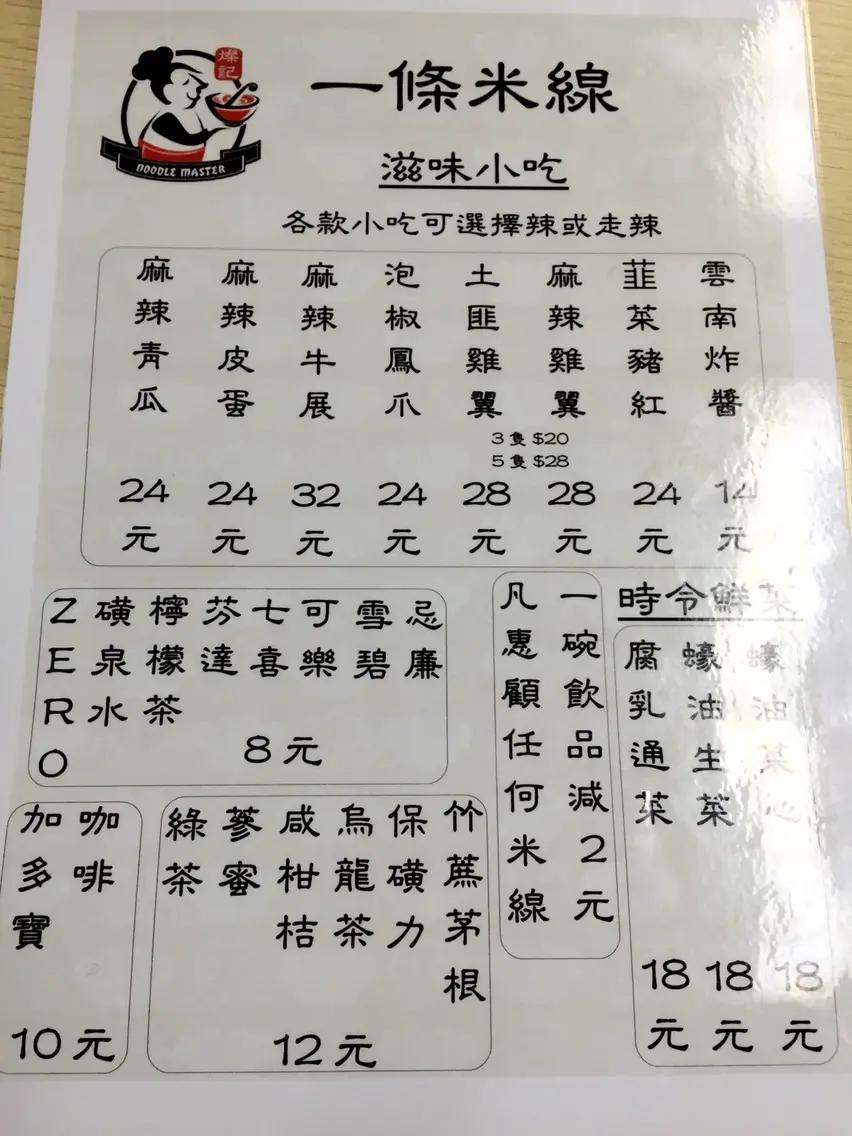 燦記
NOODLE MASTER
一條米線
滋味小吃
各款小吃可選擇辣或走辣
麻辣青瓜
24元
麻辣皮蛋
24元
麻辣牛展
32元
泡椒鳳爪
24元
土匪雞翼
28元
麻辣雞翼
28元
3隻 $20
5隻 $28
韮菜豬紅
24元
雲南炸醬
14元
ZERO
磺泉水
檸檬茶
芬達
七喜
可樂
雪碧
忌廉
8元
凡惠顧任何米線
一碗飲品減2元
時令鮮菜
腐乳通菜
18元
蠔油生菜
18元
蠔油菜心
18元
加多寶
咖啡
10元
綠茶
蔘蜜
咸柑桔
烏龍茶
保磺力
竹蔗茅根
12元